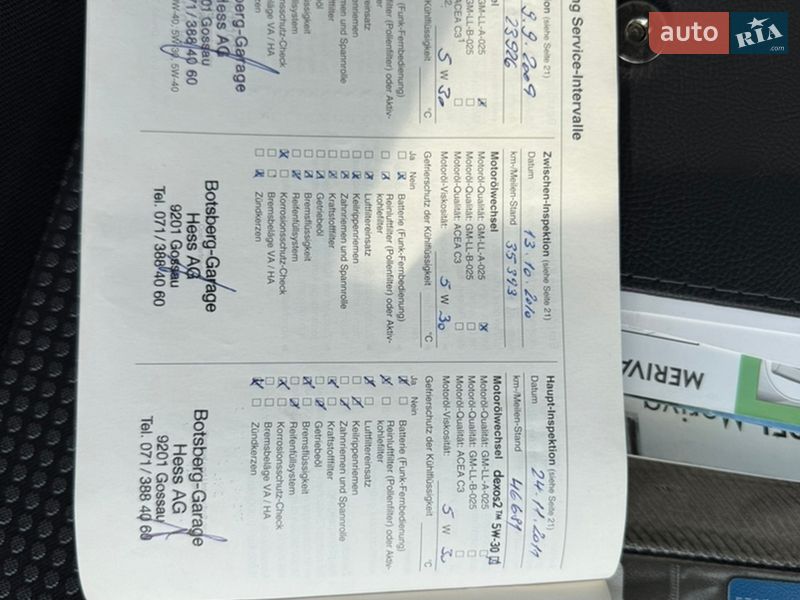 ng Service-Intervalle
(siehe Seite 21)
9.9.2009
23926
GM-LL-A-025
GM-LL-B-025
ACEA C3
5 W 30
°C
Batterie (Funk-Fernbedienung)
Botsberg-Garage
Hess AG
9201 Gossau
071/388 40 60
Zwischen-Inspektion (siehe Seite 21)
Datum 13.10.2010
km-/Meilen-Stand 35393
Motorölwechsel
Motoröl-Qualität: GM-LL-A-025
Motoröl-Qualität: GM-LL-B-025
Motoröl-Qualität: ACEA C3
Motoröl-Viskosität: 5 W 30
Gefrierschutz der Kühlflüssigkeit °C
Ja Nein
Batterie (Funk-Fernbedienung)
Reinluftfilter (Pollenfilter) oder Aktiv-
kohlefilter
Luftfiltereinsatz
Keilrippenriemen
Zahnriemen und Spannrolle
Kraftstofffilter
Getriebeöl
Bremsflüssigkeit
Reifenfüllsystem
Korrosionsschutz-Check
Bremsbeläge VA / HA
Zündkerzen
Botsberg-Garage
Hess AG
9201 Gossau
Tel. 071/388 40 60
Haupt-Inspektion (siehe Seite 21)
Datum 24.11.2011
km-/Meilen-Stand 46681
Motorölwechsel dexos2™ 5W-30
Motoröl-Qualität: GM-LL-A-025
Motoröl-Qualität: GM-LL-B-025
Motoröl-Qualität: ACEA C3
Motoröl-Viskosität: 5 W 30
Gefrierschutz der Kühlflüssigkeit °C
Ja Nein
Batterie (Funk-Fernbedienung)
Reinluftfilter (Pollenfilter) oder Aktiv-
kohlefilter
Luftfiltereinsatz
Keilrippenriemen
Zahnriemen und Spannrolle
Kraftstofffilter
Getriebeöl
Bremsflüssigkeit
Reifenfüllsystem
Korrosionsschutz-Check
Bremsbeläge VA / HA
Zündkerzen
Botsberg-Garage
Hess AG
9201 Gossau
Tel. 071/388 40 60
MERIVA
Meriva
auto RIA
.com